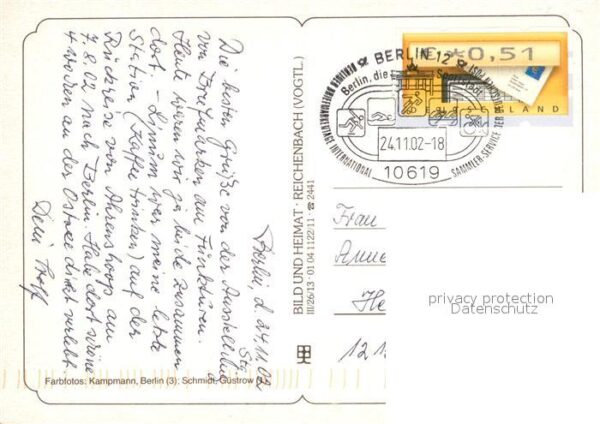 Berlin, d. 24.11.02
Die besten Grüße von der Ausstellung
von Briefmarken am Funkturm.
Heute waren wir ja beide zusammen
dort. - Linum war meine letzte
Station (Kaffee trinken) auf der
Rückreise von Ahrenshoop am
7.8.02 nach Berlin. Habe dort schöne
4 Wochen an der Ostsee direkt verlebt.
Dein
Farbfotos: Kampmann, Berlin (3); Schmidt, Güstrow
BILD UND HEIMAT · REICHENBACH (VOGTL.)
III/26/13 · 01 04 1122/11 · ☎ 2441
€*0,51
DEUTSCHLAND
BERLIN 12
Berlin, die
24.11.02-18
10619
INTERNATIONAL
SAMMLER-SERVICE DER
Frau
Anne
He
121
privacy protection
Datenschutz